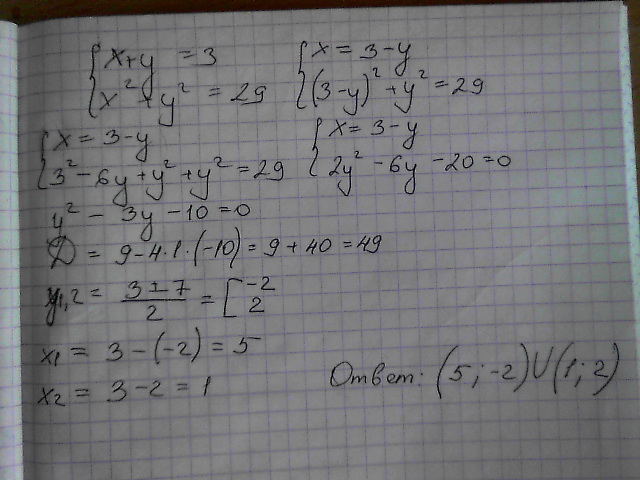 { x+y = 3   { x = 3-y
{ x² + y² = 29   { (3-y)² + y² = 29
{ x = 3-y   { x = 3-y
{ 3² - 6y + y² + y² = 29   { 2y² - 6y - 20 = 0
y² - 3y - 10 = 0
D = 9 - 4·1·(-10) = 9 + 40 = 49
y1,2 = (3 ± 7)/2 = [ -2
2
x1 = 3 - (-2) = 5
x2 = 3 - 2 = 1
Ответ: (5; -2) U (1; 2)